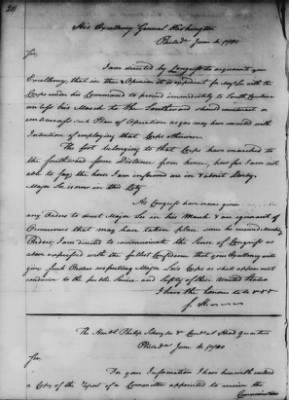 His Excellency General Washington
Philada June 4. 1780
Sir,
I am directed by Congress to acquaint your
Excellency, that in their Opinion it is expedient for Major Lee with the
Corps under his Command to proceed immediately to South Carolina
unless his March to the Southward should interfere or
embarrass such Plan of Operation as you may have concerted with
Intention of employing that Corps
The foot belonging to that Corps have marched to
the southward some Distance from hence, how far I am not
able to say, the horse I am informed are in &
Major Lee is now in the City
As Congress have never given
any Orders to direct Major Lee in his March &
that may have taken place since he
Orders, I am directed to communicate the Sense of Congress as
above expressed with the fullest Confidence that your Excellency will
give such Orders respecting Major Lee's Corps as shall appear most
conducive to the public Service and Safety of these United States
I have the honour to be &c &c
The Honble Philip Schuyler & Comtee at Head quarters
Philada June 4. 1780
Sir,
For your Information I have herewith enclosed
a Copy of the Report of a Committee appointed to
the